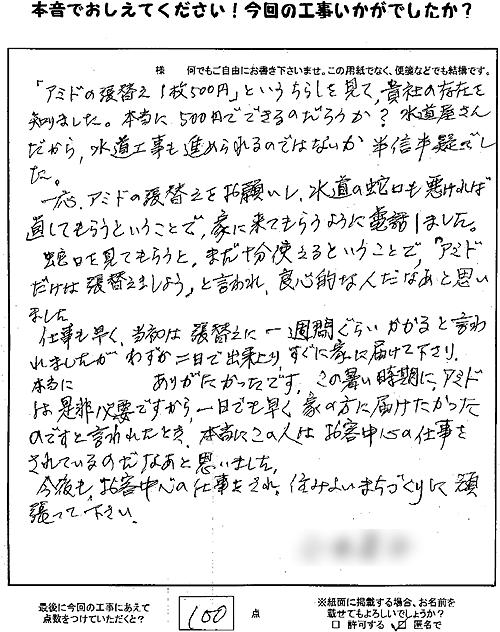 本音でおしえてください!今回の工事いかがでしたか?
様 何でもご自由にお書き下さいませ。この用紙でなく、便箋などでも結構です。
「アミドの張替え1枚500円」というちらしを見て、貴社の存在を
知りました。本当に500円でできるのだろうか?水道屋さん
だから、水道工事も進められるのではないか半信半疑でし
た。
一応、アミドの張替えをお願いし、水道の蛇口も悪ければ
直してもらうということで、家に来てもらうように電話しました。
蛇口を見てもらうと、まだ十分使えるということで、「アミド
だけは張替えましょう」と言われ、良心的な人だなあと思い
ました
仕事も早く、当初は張替えに一週間ぐらいかかると言わ
れましたがわずか二日で出来上り、すぐに家に届けて下さり、
本当に ありがたかったです。この暑い時期に、アミド
は是非必要ですから、一日でも早く家の方に届けたかった
のですと言われたとき、本当にこの人はお客中心の仕事を
されているのだなあと思いました。
今後も、お客中心の仕事をされ、住みよいまちづくりに頑
張って下さい。
最後に今回の工事にあえて
点数をつけていただくと?
100 点
※紙面に掲載する場合、お名前を
載せてもよろしいでしょうか?
□ 許可する ☑ 匿名で